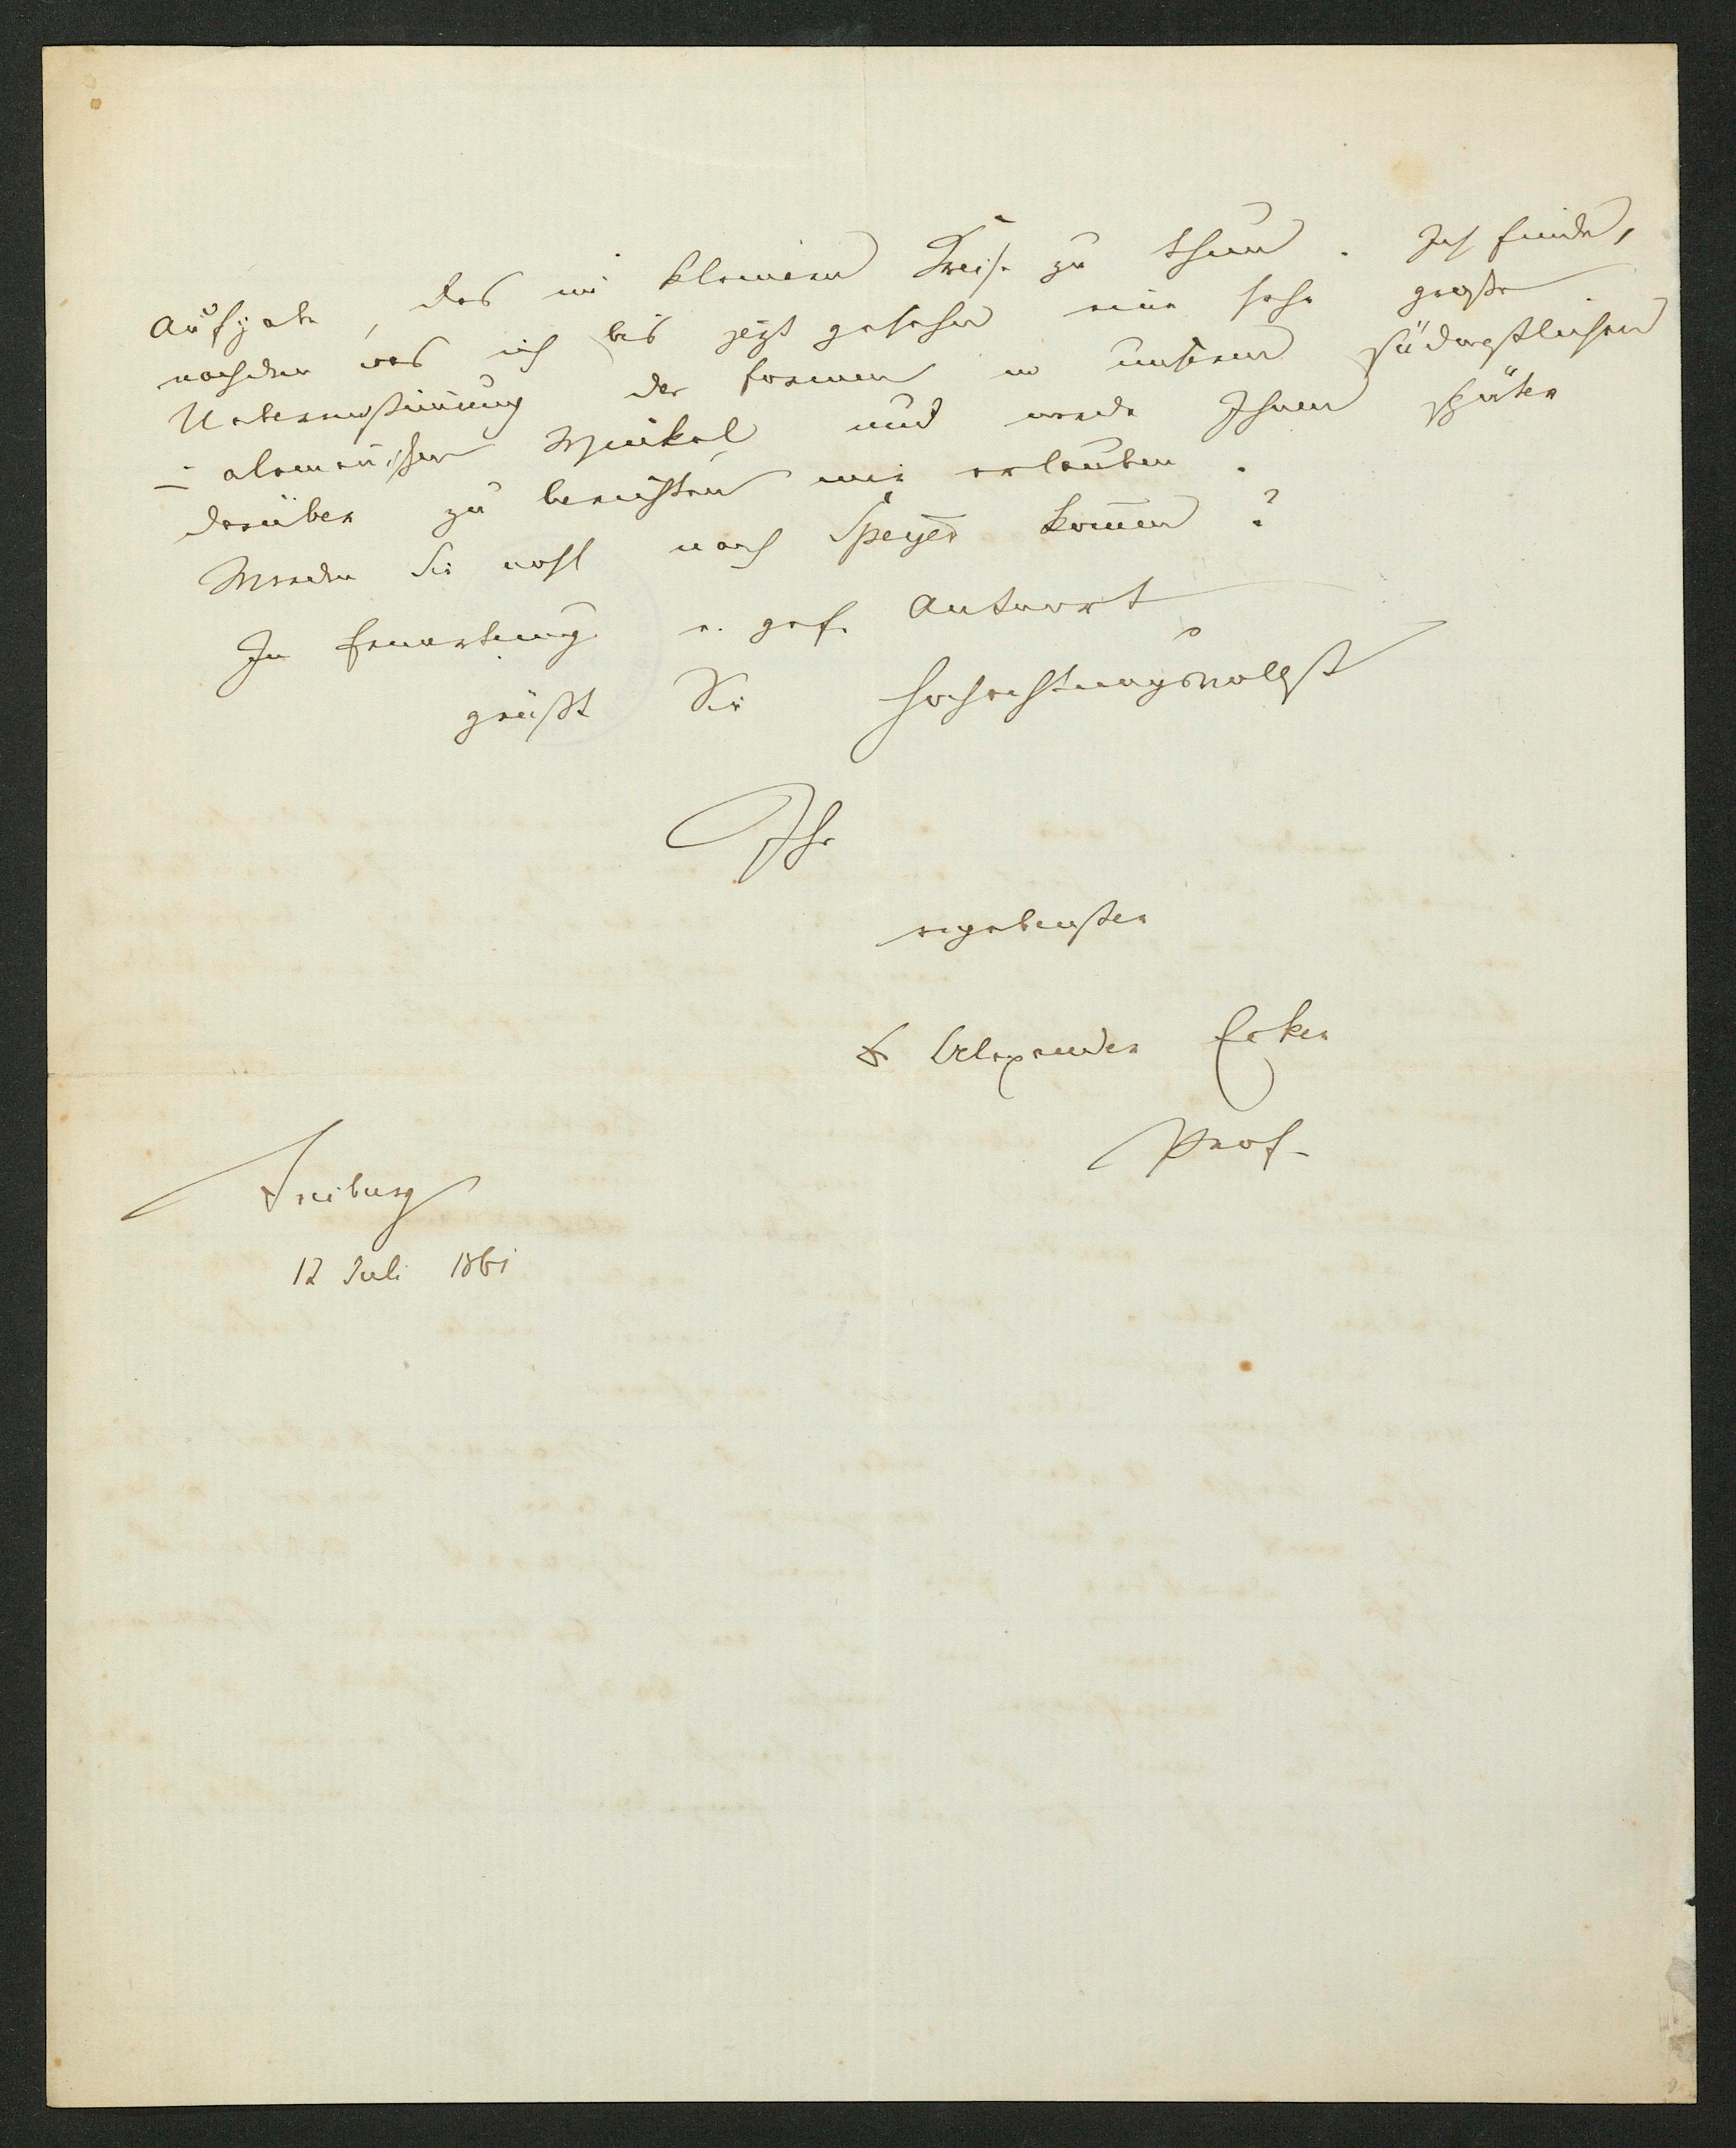 Aufgabe, das im kleinern Kreise zu thun. Ich finde,
nachdem was ich bis jezt gesehen eine sehr große
Uebereinstimmung der Formen in unserem südwestlichen
- alemanischen Winkel und werde Ihnen später
darüber zu berichten mir erlauben.
Werden Sie wohl nach Speyer kom̄en?
In Erwartung e. gef. Antwort
grüßt Sie hochachtungsvollst
Ihr
ergebenster
Alexander Ecker
Prof.
Freiburg
12 Juli 1861